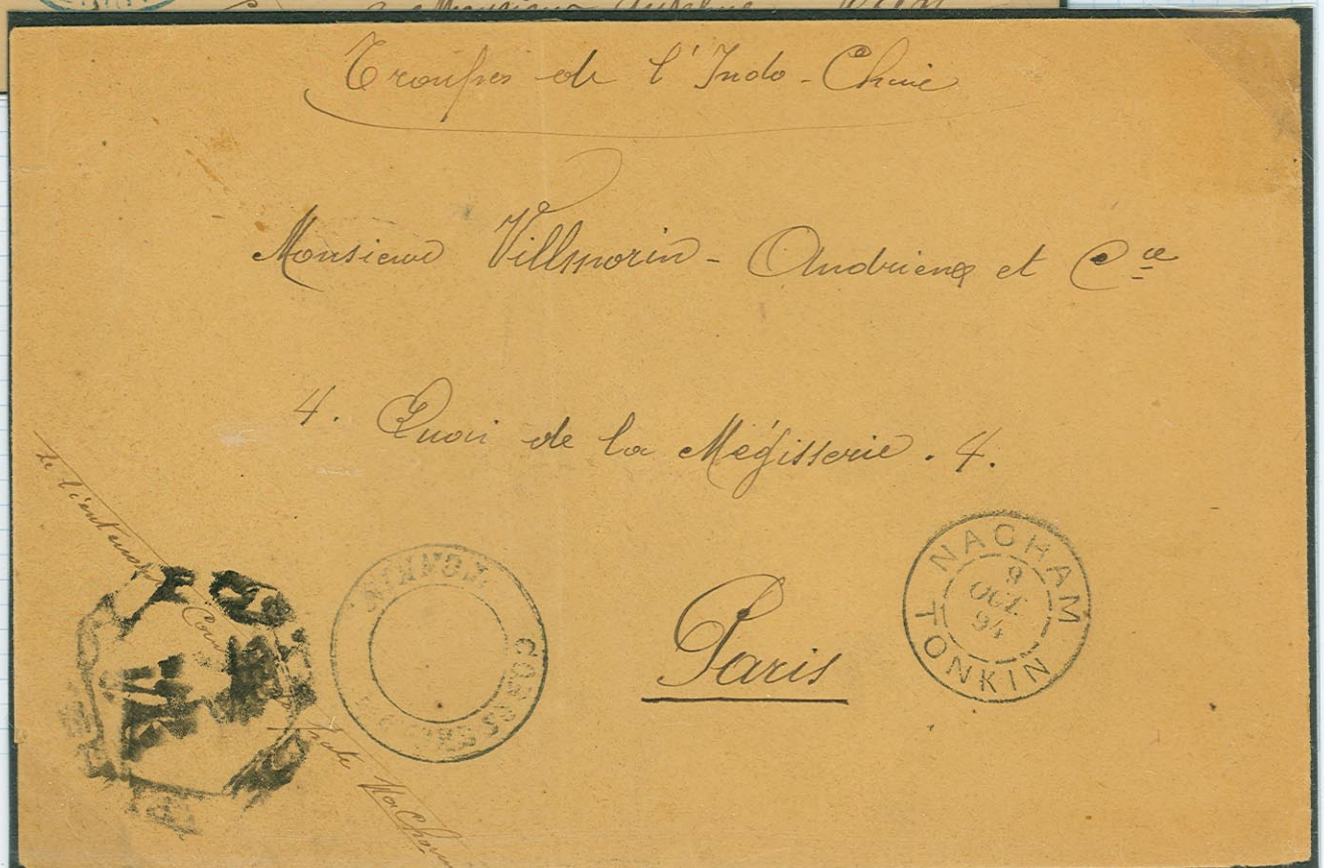 Troupes de l'Indo-Chine
Monsieur Villmorin-Andrieux et Cie
4. Quai de la Mégisserie. 4.
Paris
NACHAM
9
OCT.
94
TONKIN
TONKIN
le lieutenant
poste Na Cham